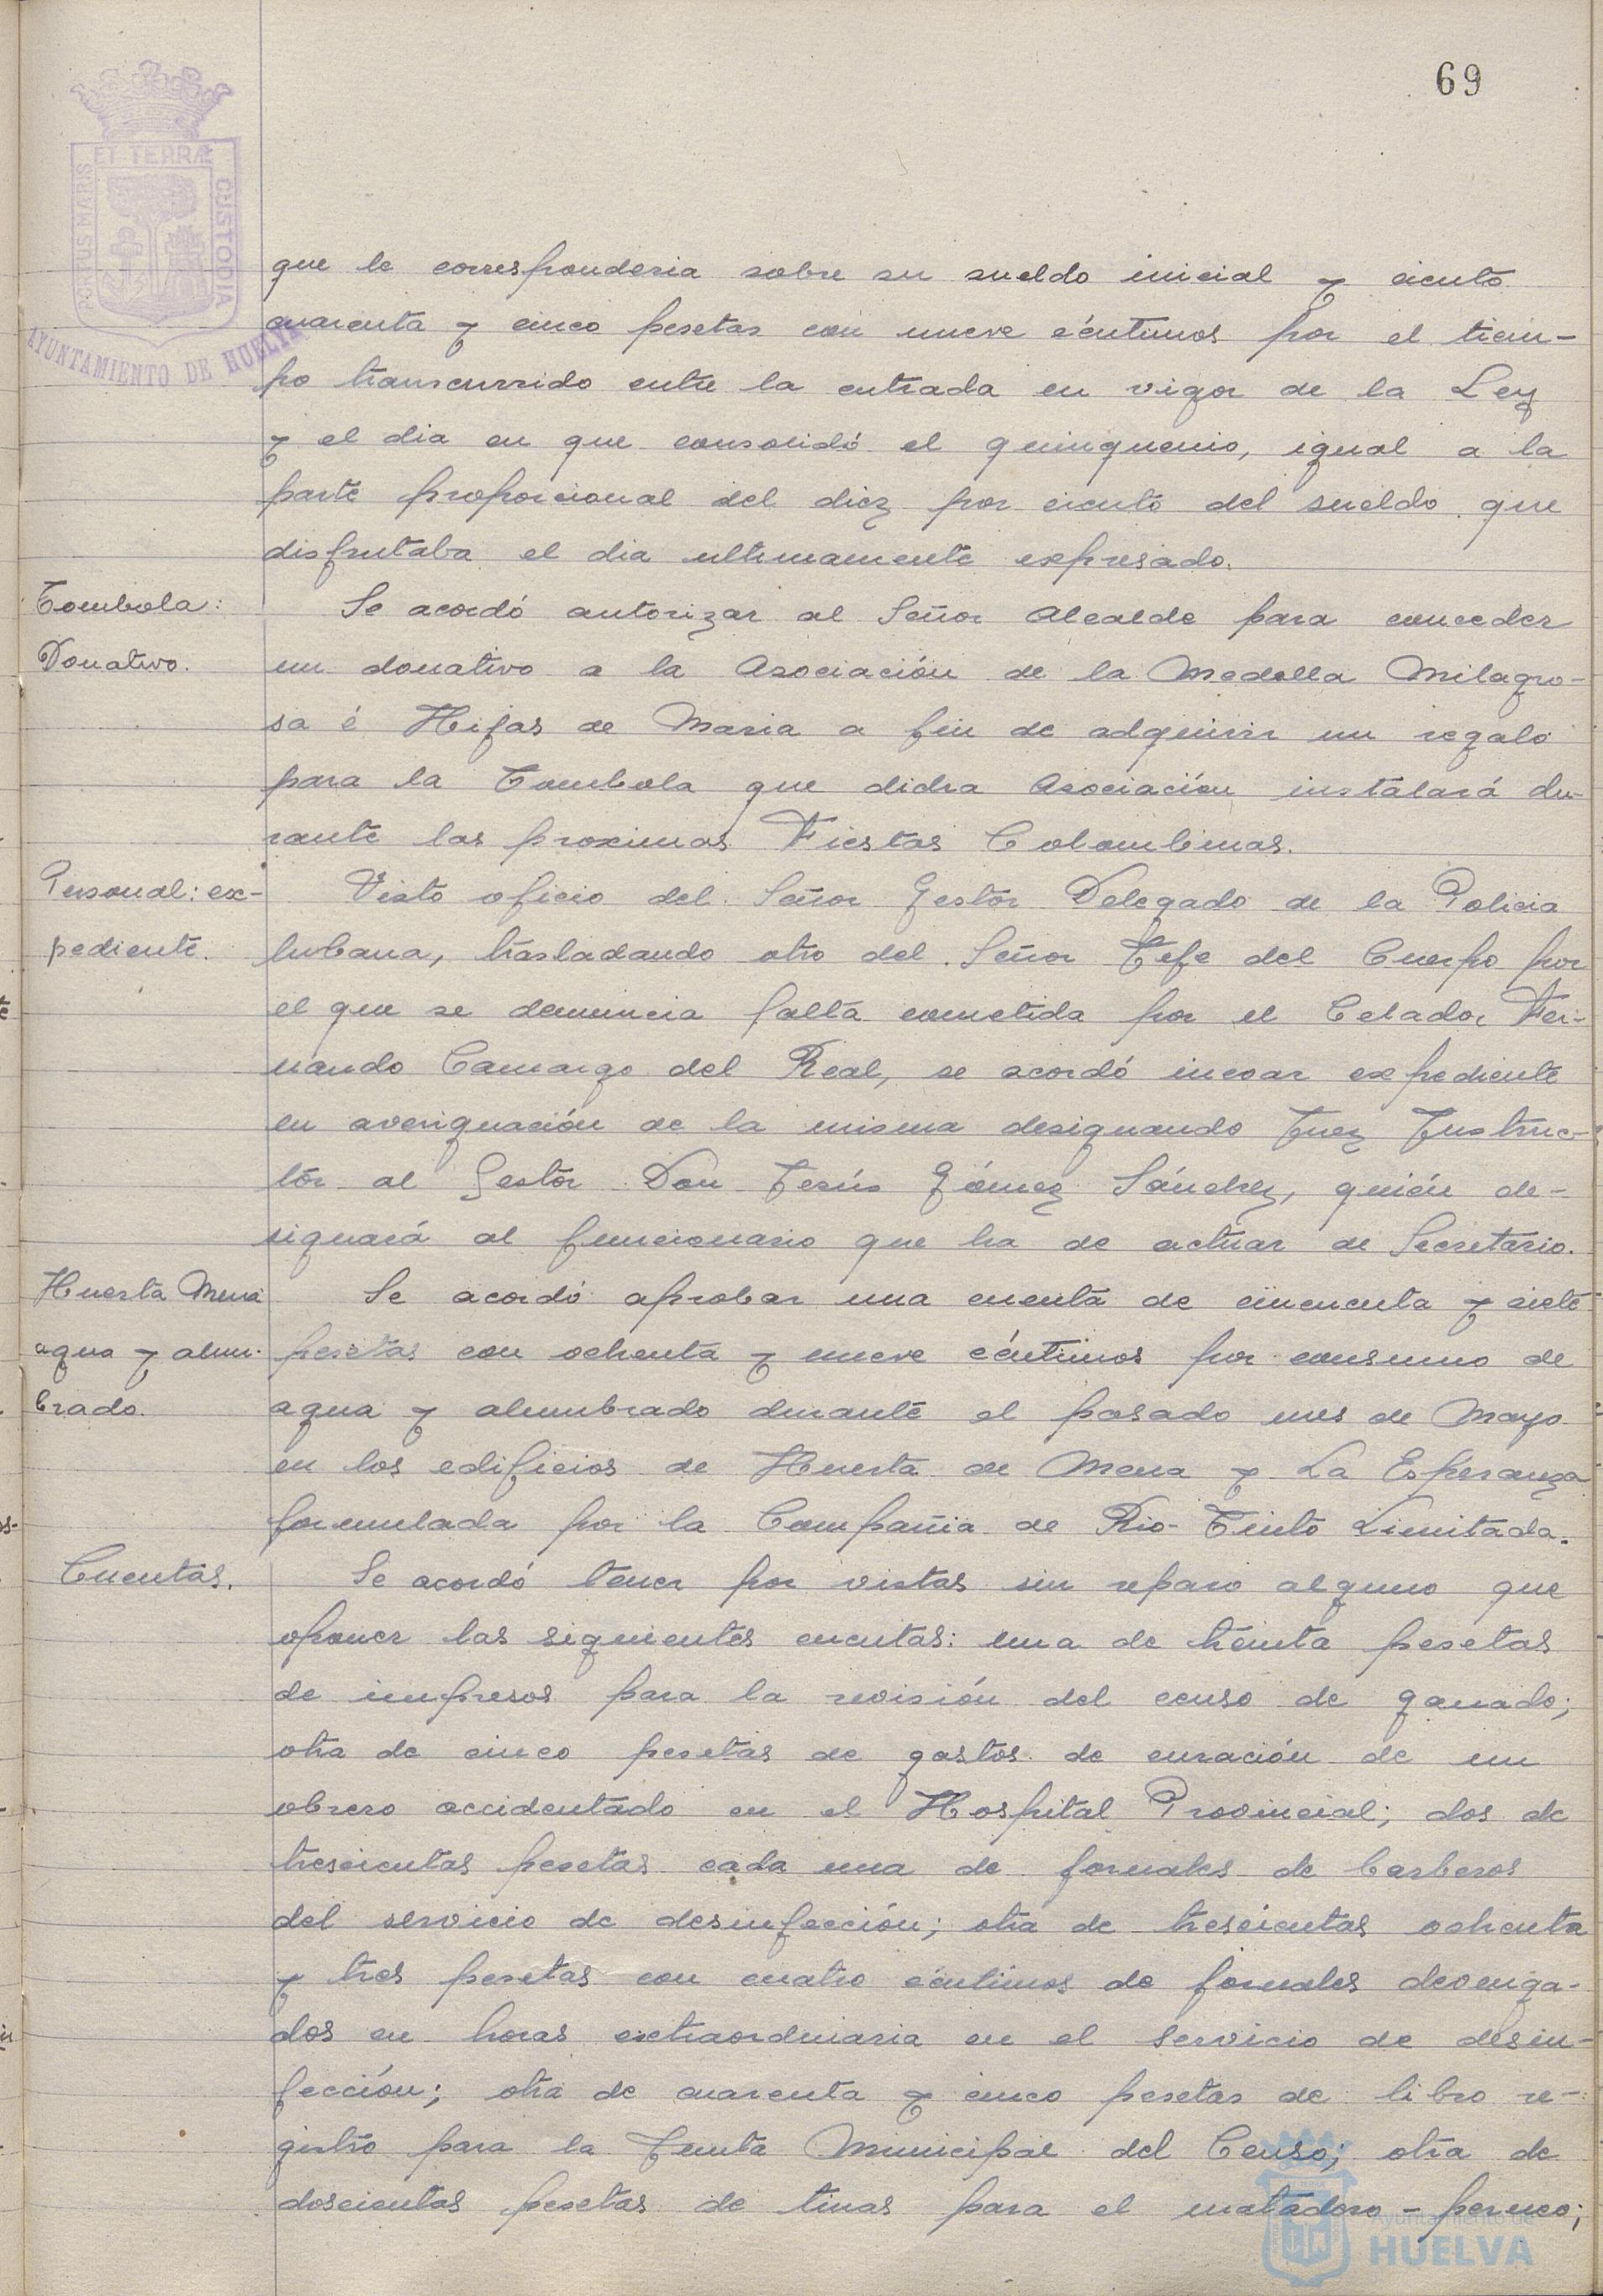 69
PORTUS MARIS
ET TERRÆ
CUSTODIA
AYUNTAMIENTO DE HUELVA
que le corresponderia sobre su sueldo inicial y ciento
cuarenta y cinco pesetas con nueve céntimos por el tiem-
po transcurrido entre la entrada en vigor de la Ley
y el dia en que consolidó el quinquenio, igual a la
parte proporcional del diez por ciento del sueldo que
disfrutaba el dia ultimamente expresado.
Tombola:
Donativo.
Se acordó autorizar al Señor Alcalde para conceder
un donativo a la Asociación de la Medalla Milagro-
sa é Hijas de Maria a fin de adquirir un regalo
para la Tombola que dicha Asociación instalará du-
rante las proximas Fiestas Colombinas.
Personal: ex-
pediente.
Visto oficio del Señor Gestor Delegado de la Policia
Urbana, trasladando otro del Señor Jefe del Cuerpo por
el que se denuncia falta cometida por el Celador Fer-
nando Camargo del Real, se acordó incoar expediente
en averiguación de la misma designando Juez Instruc-
tor al Gestor Don Jesús Gómez Sánchez, quién de-
signará al funcionario que ha de actuar de Secretario.
Huerta Mena
agua y alum-
brado.
Se acordó aprobar una cuenta de cincuenta y siete
pesetas con ochenta y nueve céntimos por consumo de
agua y alumbrado durante el pasado mes de Mayo
en los edificios de Huerta de Mena y La Esperanza
formulada por la Compañia de Rio-Tinto Limitada.
Cuentas.
Se acordó tener por vistas sin reparo alguno que
oponer las siguientes cuentas: una de treinta pesetas
de impresos para la revisión del censo de ganado;
otra de cinco pesetas de gastos de curación de un
obrero accidentado en el Hospital Provincial; dos de
trescientas pesetas cada una de jornales de barberos
del servicio de desinfección; otra de trescientas ochenta
y tres pesetas con cuatro céntimos de jornales devenga-
dos en horas extraordinaria en el servicio de desin-
fección; otra de cuarenta y cinco pesetas de libro re-
gistro para la Junta Municipal del Censo; otra de
doscientas pesetas de tinas para el matadero-perneo;
Ayuntamiento de
HUELVA